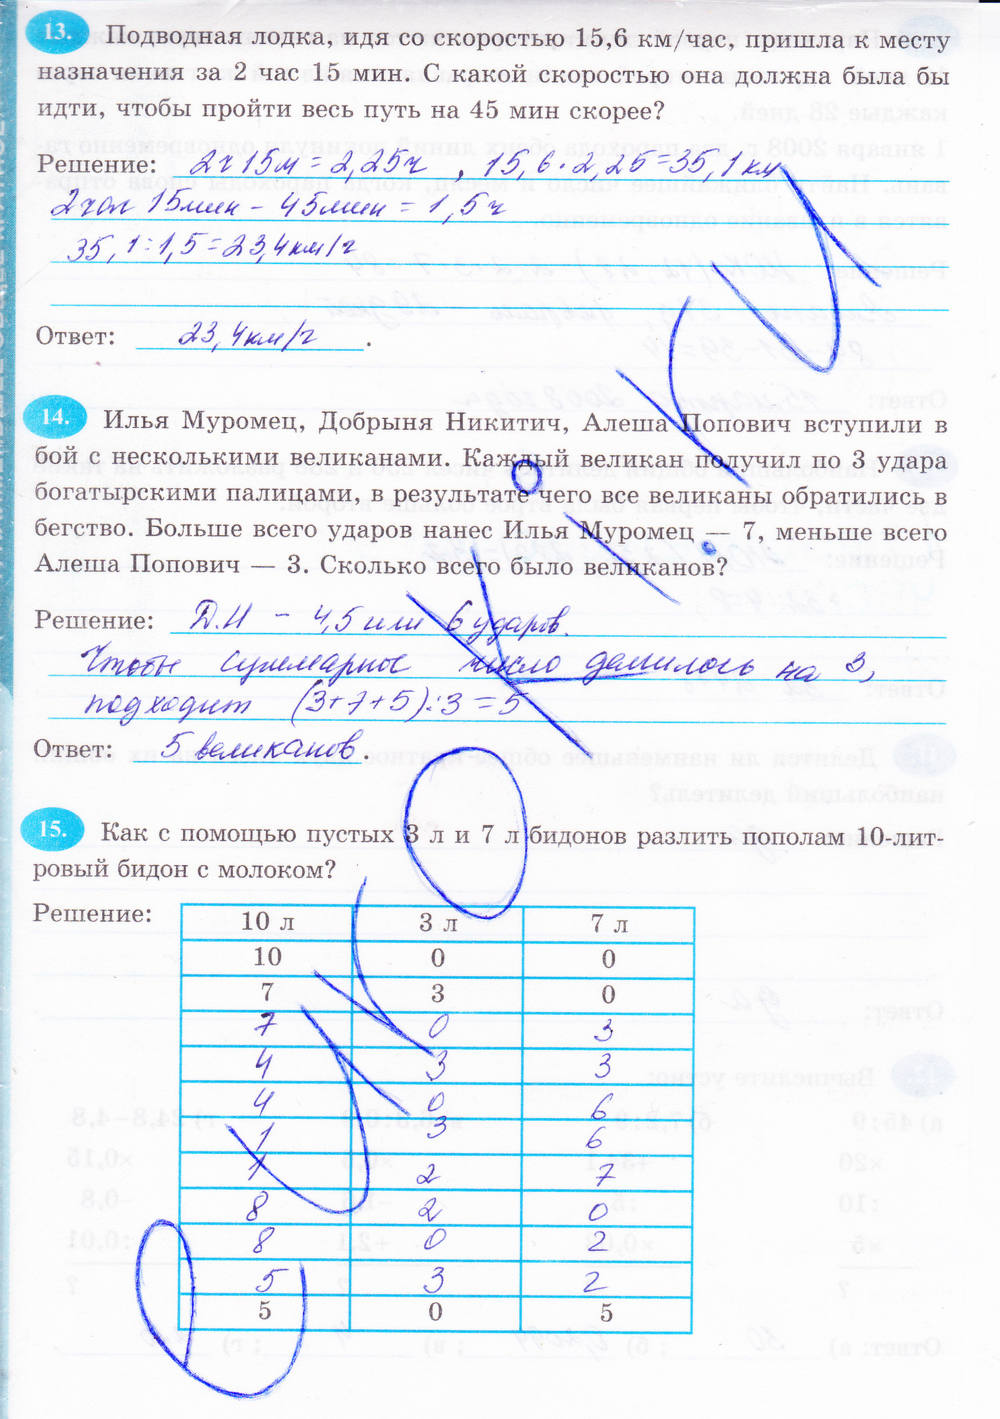 13. Подводная лодка, идя со скоростью 15,6 км/час, пришла к месту
назначения за 2 час 15 мин. С какой скоростью она должна была бы
идти, чтобы пройти весь путь на 45 мин скорее?
Решение: 2ч 15м = 2,25ч , 15,6 · 2,25 = 35,1 км
2 час 15 мин - 45 мин = 1,5 ч
35,1 : 1,5 = 23,4 км/г
Ответ: 23,4 км/г .
14. Илья Муромец, Добрыня Никитич, Алеша Попович вступили в
бой с несколькими великанами. Каждый великан получил по 3 удара
богатырскими палицами, в результате чего все великаны обратились в
бегство. Больше всего ударов нанес Илья Муромец — 7, меньше всего
Алеша Попович — 3. Сколько всего было великанов?
Решение: Д.Н - 4,5 или 6 ударов.
Чтобы суммарное число делилось на 3,
подходит (3+7+5):3=5
Ответ: 5 великанов .
15. Как с помощью пустых 3 л и 7 л бидонов разлить пополам 10-лит-
ровый бидон с молоком?
Решение:
10 л 3 л 7 л
10 0 0
7 3 0
7 0 3
4 3 3
4 0 6
1 3 6
1 2 7
8 2 0
8 0 2
5 3 2
5 0 5